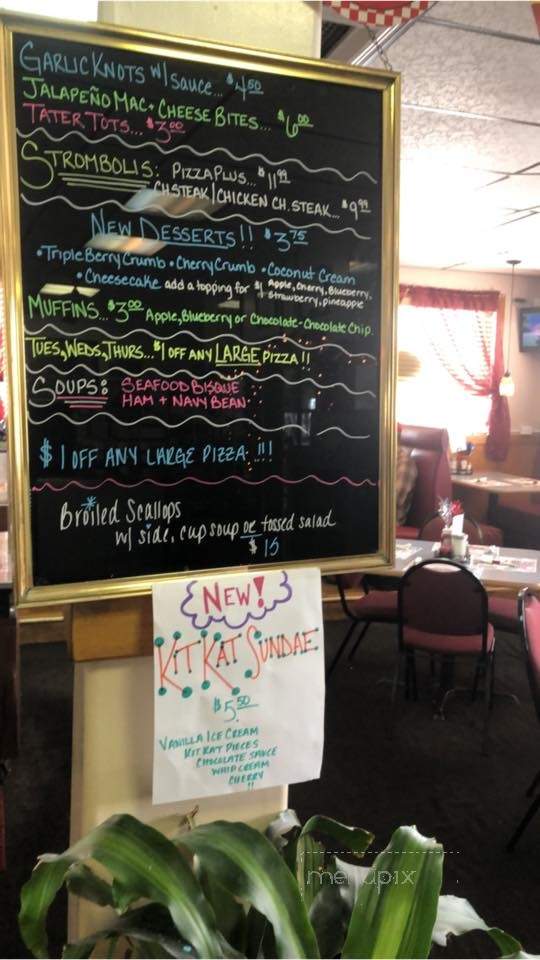 GARLIC KNOTS w/ Sauce... $4.50
JALAPEÑO MAC + CHEESE BITES... $6.00
TATER TOTS... $3.00
STROMBOLIS: PIZZA PLUS... $11.99
CHSTEAK/CHICKEN CH. STEAK... $9.99
NEW DESSERTS!! $3.75
•Triple Berry Crumb •Cherry Crumb •Coconut Cream
•Cheesecake add a topping for $1 Apple, Cherry, Blueberry,
Strawberry, pineapple
MUFFINS... $3.00 Apple, Blueberry or Chocolate-Chocolate Chip.
TUES, WEDS, THURS... $1 OFF ANY LARGE PIZZA!!
SOUPS: SEAFOOD BISQUE
HAM + NAVY BEAN
$1 OFF ANY LARGE PIZZA...!!!
Broiled Scallops
w/ side, cup soup or tossed salad
$15
NEW!
KIT KAT SUNDAE
$5.50
VANILLA ICE CREAM
KIT KAT PIECES
CHOCOLATE SAUCE
WHIP CREAM
CHERRY
!!
menupix